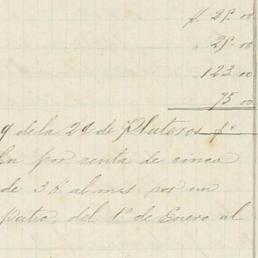 $ 29.00
29.00
123.00
75.00
9 de la 2ª de Plateros pº
En por renta de cinco
de 3 $ al mes por un
Patio, del 1º de Enero al